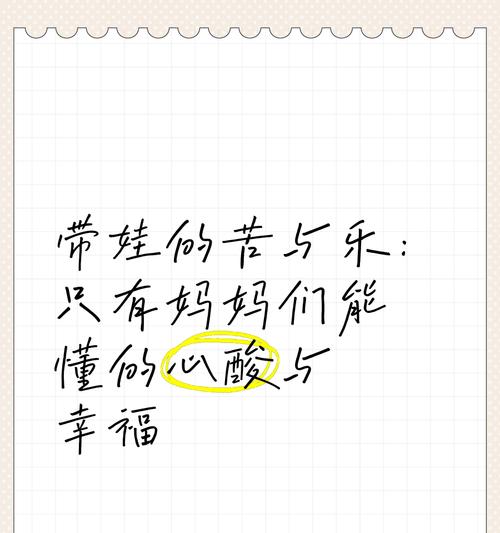 带娃的苦与乐：
只有妈妈们能
懂的心酸与
幸福